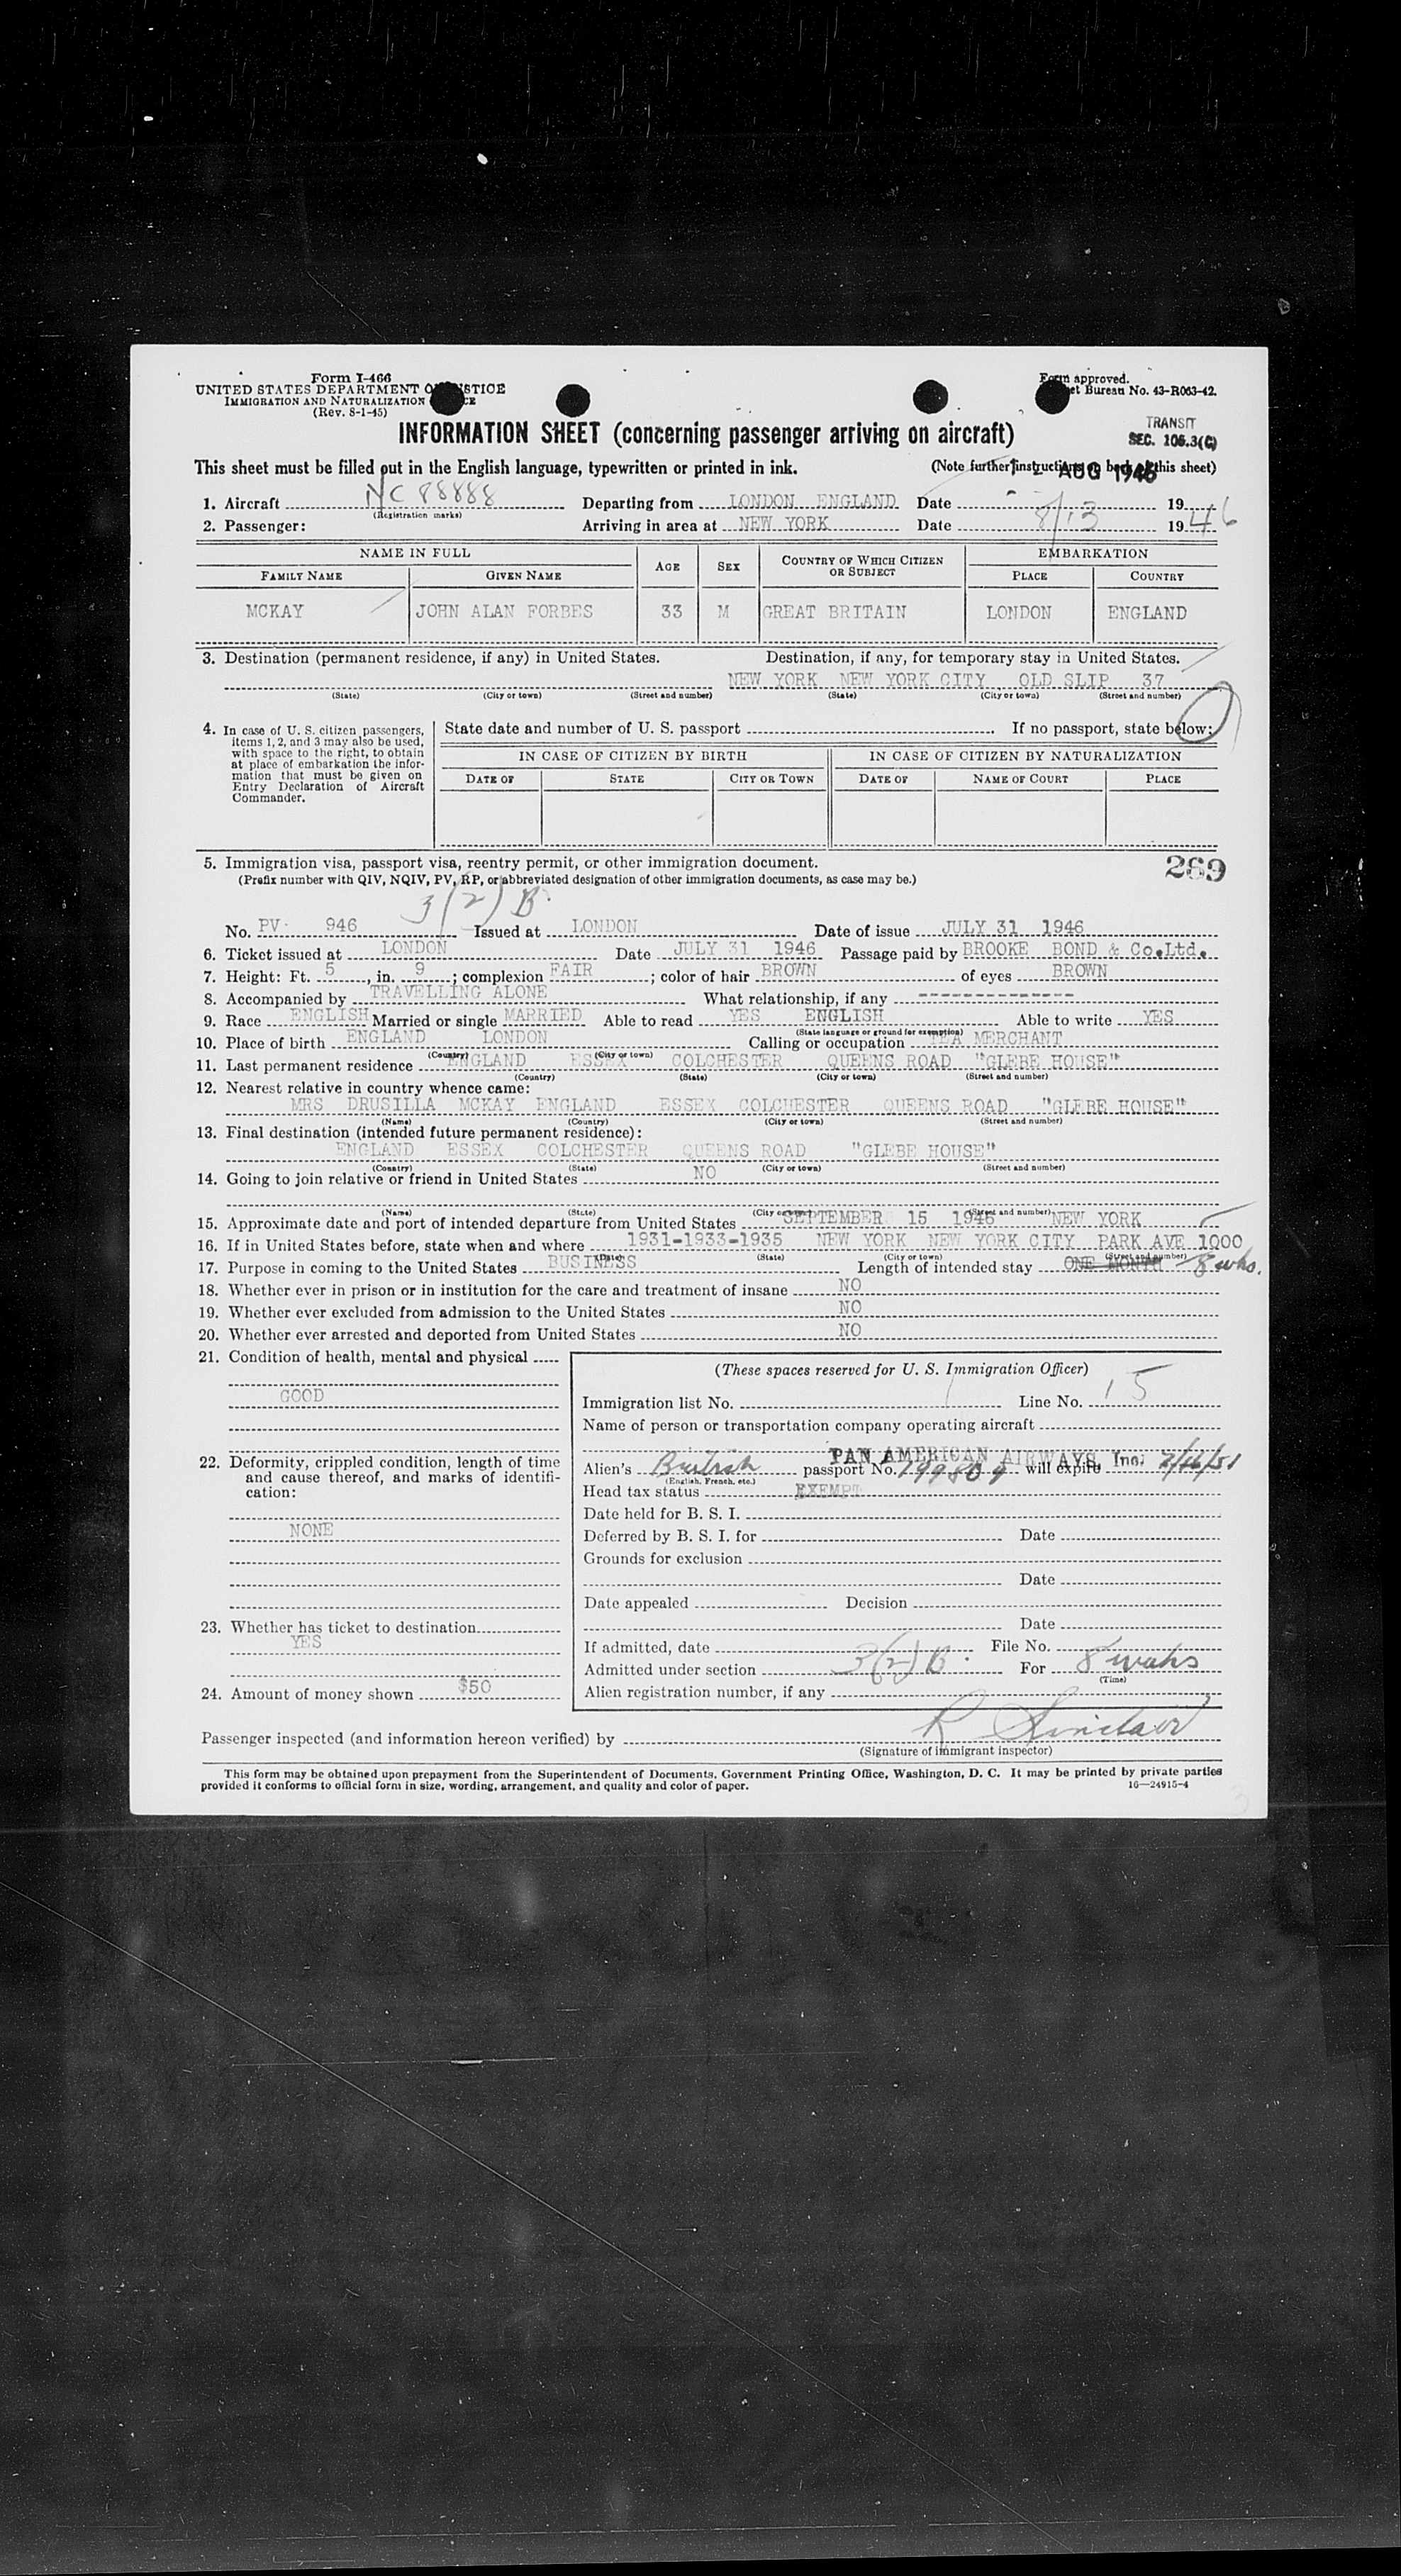 Form I-466
UNITED STATES DEPARTMENT OF JUSTICE
IMMIGRATION AND NATURALIZATION
(Rev. 8-1-45)
Form approved.
et Bureau No. 43-R063-42.
INFORMATION SHEET (concerning passenger arriving on aircraft)
TRANSIT
SEC. 106.3(C)
This sheet must be filled out in the English language, typewritten or printed in ink.
(Note further instructions on back of this sheet)
AUG 1946
1. Aircraft NC 88888 Departing from LONDON ENGLAND Date 19
(Registration marks)
2. Passenger: Arriving in area at NEW YORK Date 8/13 1946
NAME IN FULL AGE SEX COUNTRY OF WHICH CITIZEN OR SUBJECT EMBARKATION
FAMILY NAME GIVEN NAME PLACE COUNTRY
MCKAY JOHN ALAN FORBES 33 M GREAT BRITAIN LONDON ENGLAND
3. Destination (permanent residence, if any) in United States. Destination, if any, for temporary stay in United States.
NEW YORK NEW YORK CITY OLD SLIP 37
(State) (City or town) (Street and number) (State) (City or town) (Street and number)
4. In case of U. S. citizen passengers, items 1, 2, and 3 may also be used, with space to the right, to obtain at place of embarkation the information that must be given on Entry Declaration of Aircraft Commander.
State date and number of U. S. passport If no passport, state below:
IN CASE OF CITIZEN BY BIRTH IN CASE OF CITIZEN BY NATURALIZATION
DATE OF STATE CITY OR TOWN DATE OF NAME OF COURT PLACE
5. Immigration visa, passport visa, reentry permit, or other immigration document. 269
(Prefix number with QIV, NQIV, PV, RP, or abbreviated designation of other immigration documents, as case may be.)
3(2)B
No. PV- 946 Issued at LONDON Date of issue JULY 31 1946
6. Ticket issued at LONDON Date JULY 31 1946 Passage paid by BROOKE BOND & Co.Ltd.
7. Height: Ft. 5, in. 9; complexion FAIR; color of hair BROWN of eyes BROWN
8. Accompanied by TRAVELLING ALONE What relationship, if any --------------
9. Race ENGLISH Married or single MARRIED Able to read YES ENGLISH Able to write YES
(State language or ground for exemption)
10. Place of birth ENGLAND LONDON Calling or occupation TEA MERCHANT
(Country) (City or town)
11. Last permanent residence ENGLAND ESSEX COLCHESTER QUEENS ROAD "GLEBE HOUSE"
(Country) (State) (City or town) (Street and number)
12. Nearest relative in country whence came:
MRS DRUSILLA MCKAY ENGLAND ESSEX COLCHESTER QUEENS ROAD "GLEBE HOUSE"
(Name) (Country) (City or town) (Street and number)
13. Final destination (intended future permanent residence):
ENGLAND ESSEX COLCHESTER QUEENS ROAD "GLEBE HOUSE"
(Country) (State) (City or town) (Street and number)
14. Going to join relative or friend in United States NO
(Name) (State) (City or town) (Street and number)
15. Approximate date and port of intended departure from United States SEPTEMBER 15 1946 NEW YORK
16. If in United States before, state when and where 1931-1933-1935 NEW YORK NEW YORK CITY PARK AVE 1000
(Date) (State) (City or town) (Street and number)
17. Purpose in coming to the United States BUSINESS Length of intended stay ONE MONTH 8 wks.
18. Whether ever in prison or in institution for the care and treatment of insane NO
19. Whether ever excluded from admission to the United States NO
20. Whether ever arrested and deported from United States NO
21. Condition of health, mental and physical
GOOD
22. Deformity, crippled condition, length of time and cause thereof, and marks of identification:
NONE
23. Whether has ticket to destination
YES
24. Amount of money shown $50
(These spaces reserved for U. S. Immigration Officer)
Immigration list No. Line No. 15
Name of person or transportation company operating aircraft
PAN AMERICAN AIRWAYS, Inc.
Alien's British passport No. 199809 will expire
(English, French, etc.)
Head tax status EXEMPT
Date held for B. S. I.
Deferred by B. S. I. for Date
Grounds for exclusion
Date
Date appealed Decision
Date
If admitted, date File No.
Admitted under section 3(2)B. For 8 weeks
(Time)
Alien registration number, if any
Passenger inspected (and information hereon verified) by R Sinclair
(Signature of immigrant inspector)
This form may be obtained upon prepayment from the Superintendent of Documents, Government Printing Office, Washington, D. C. It may be printed by private parties
provided it conforms to official form in size, wording, arrangement, and quality and color of paper.
16—24915-4